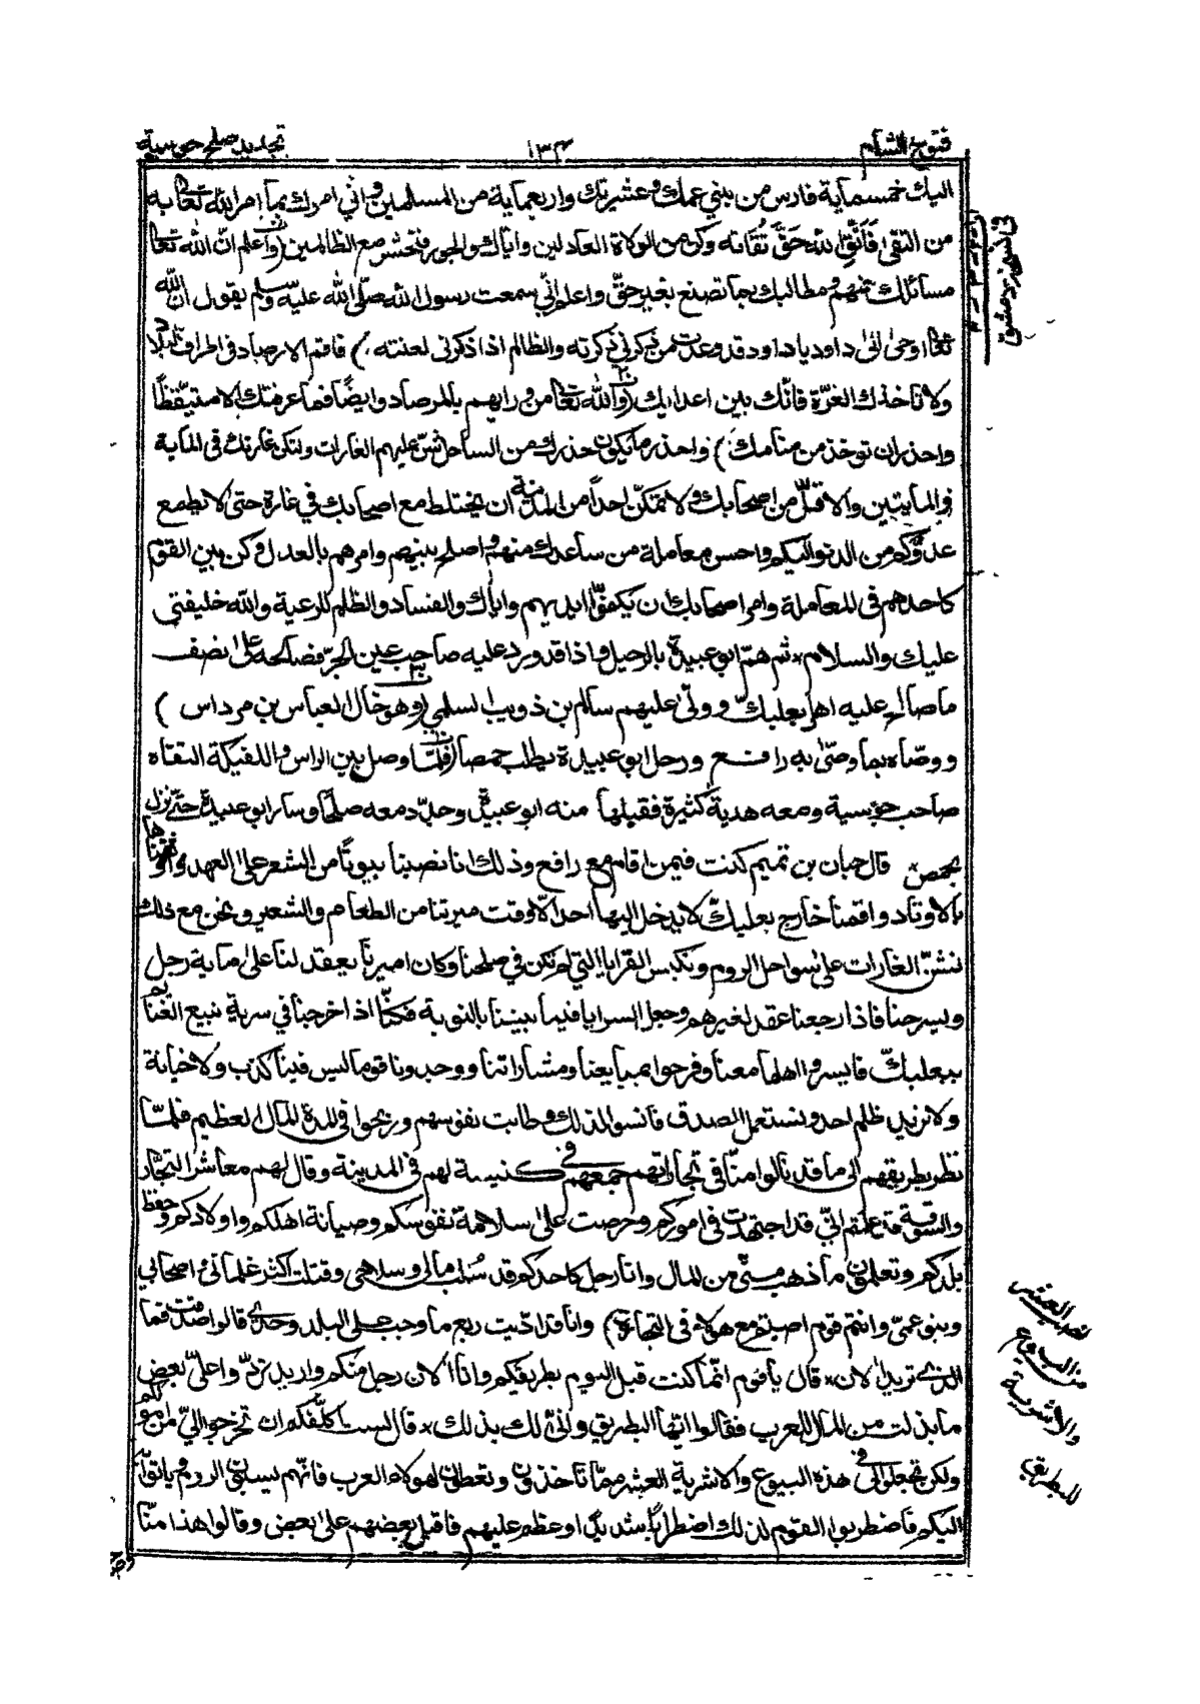 فتوح الشام
١٣٤
تجديد صلح جوسية
اليك خمسماية فارس من بني عمك وعشيرتك واربعماية من المسلمين واني امرك بما امر الله تعالى به
من التقى فاتقوا لله حَقَّ تُقَاته وكن من الولاة العادلين واياك والجور فتحشر مع الظالمين (واعلم انّ الله تعا
مسائلك عنهم ومطالبك بما تصنع بغير حقّ واعلم انّي سمعت رسول الله صلّى الله عليه وسلم يقول ان الله
تعا اوحىٰ الىٰ داود يا داود قد وعدت من ذكرني ذكرته والظالم اذا ذكرني لعنته) فاقم الارصاد في اطراف البلاد
ولا تاخذك الغرّة فانّك بين اعدايك (والله تعا من ورايهم بالمرصاد وايضًا فما عرفتك الا مستيقظًا
واحذر ان توخذ من منامك) واحذر ما يكون حذرك من الساحل شنّ عليهم الغارات ولتكن غارتك في الماية
والمايتين والا قلّ من اصحابك ولا تمكّن احدًا من المدينة ان يختلط مع اصحابك في غارة حتى لا يطمع
عدوّكم من الدنو اليكم واحسن معاملة من ساعدك منهم واصلح بينهم وامرهم بالعدل وكن بين القوم
كاحدهم في المعاملة وامر اصحابك ان يكفوّا ايديهم واياك والفساد والظلم للرعية والله خليفتي
عليك والسلام * ثم همّ ابو عبيدة بالرحيل واذا قد ورد عليه صاحب عين الجرّ فصالحه على نصف
ما صالح عليه اهل بعلبكّ وولّى عليهم سالم بن ذويب السلمي (وهو خال العباس بن مرداس)
ووصّاه بما وصّىٰ به رافع ورحل ابو عبيدة يطلب حمصا فلمّا وصل بين الراس واللفيكة التقاه
صاحب جوسية ومعه هدية كثيرة فقبلها منه ابو عبيدة وجدّد معه صلحًا وسار ابو عبيدة حتّى نزل
بحمص * قال حبان بن تميم كنت فيمن اقام مع رافع وذلك انا نصبنا بيوتًا من الشعر على العهد واوثقناها
بالاوتاد واقمنا خارج بعلبكّ لا يدخل اليها احد الّا وقت ميرتنا من الطعام والشعير ونحن مع ذلك
نشنّ الغارات على سواحل الروم ونكبس القرايا التي لم تكن في صلحنا وكان اميرنا يعقد لنا على ماية رجل
ويسرحنا فاذا رجعنا عقد لغيرهم وجعل السرايا فيما بيننا بالنوبة فكنّا اذا خرجنا في سرية نبيع الغنايم
ببعلبكّ فايسروا اهلها معنا وفرحوا بمبايعنا ومشاراتنا ووجدونا قوما ليس فينا كذب ولا خيانة
ولا نريد ظلم احد ونستعمل الصدق فانسوا لذلك وطابت نفوسهم وربحوا في المدة المال العظيم فلمّا
نظر بطريقهم الى ما قد نالوا منّا في تجارتهم جمعهم في كنيسة لهم في المدينة وقال لهم معاشر التجّار
والسوقة قد علمتم انّي قد اجتهدت في اموركم وحرصت على سلامة نفوسكم وصيانة اهلكم واولادكم وحفظ
بلدكم وتعلمون ما ذهب منّي من المال وانا رجل كاحدكم قد سُلب مالي وسلاحي وقتلت اكثر غلماني اصحابي
وبنو عمّي وانتم قوم اصبتم مع هولاء في التجارة) وانا قد ادّيت ربع ما وجب على البلد وحدي قالوا صدقت فما
الذي تريد الان * قال يا قوم انّما كنت قبل اليوم بطريقكم وانا الان رجل منكم واريد تردّوا عليّ بعض
ما بذلت من المال للعرب فقالوا ايّها البطريق وانّى لك بذلك * قال لست اكلّفكم ان تخرجوا اليّ من اموالكم
ولكن تجعلوا لي في هذه البيوع والاشرية العشر ممّا تاخذون وتعطون لهولاء العرب فانّهم يسلبون الروم وياتون
اليكم فاضطربوا القوم لذلك اضطرابًا شديدًا وعظم عليهم فاقبل بعضهم على بعض وقالوا هذا منّا
نصاب العشر
من البيوع
والاشرية
للبطريق